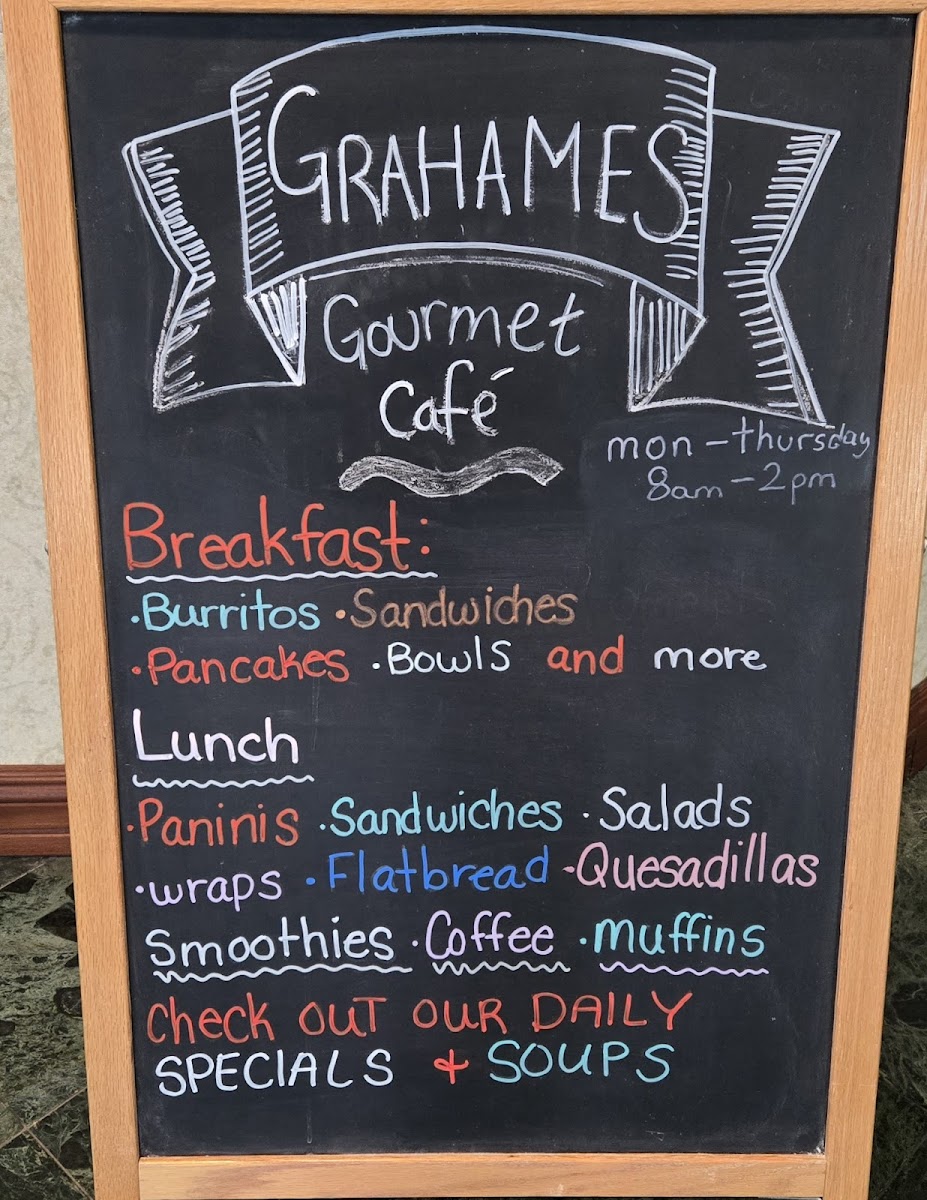 GRAHAMES
Gourmet
Café
mon - thursday
8am - 2pm
Breakfast:
·Burritos ·Sandwiches
·Pancakes ·Bowls and more
Lunch
·Paninis ·Sandwiches ·Salads
·wraps ·Flatbread ·Quesadillas
Smoothies ·Coffee ·muffins
Check OUT OUR DAILY
SPECIALS + SOUPS